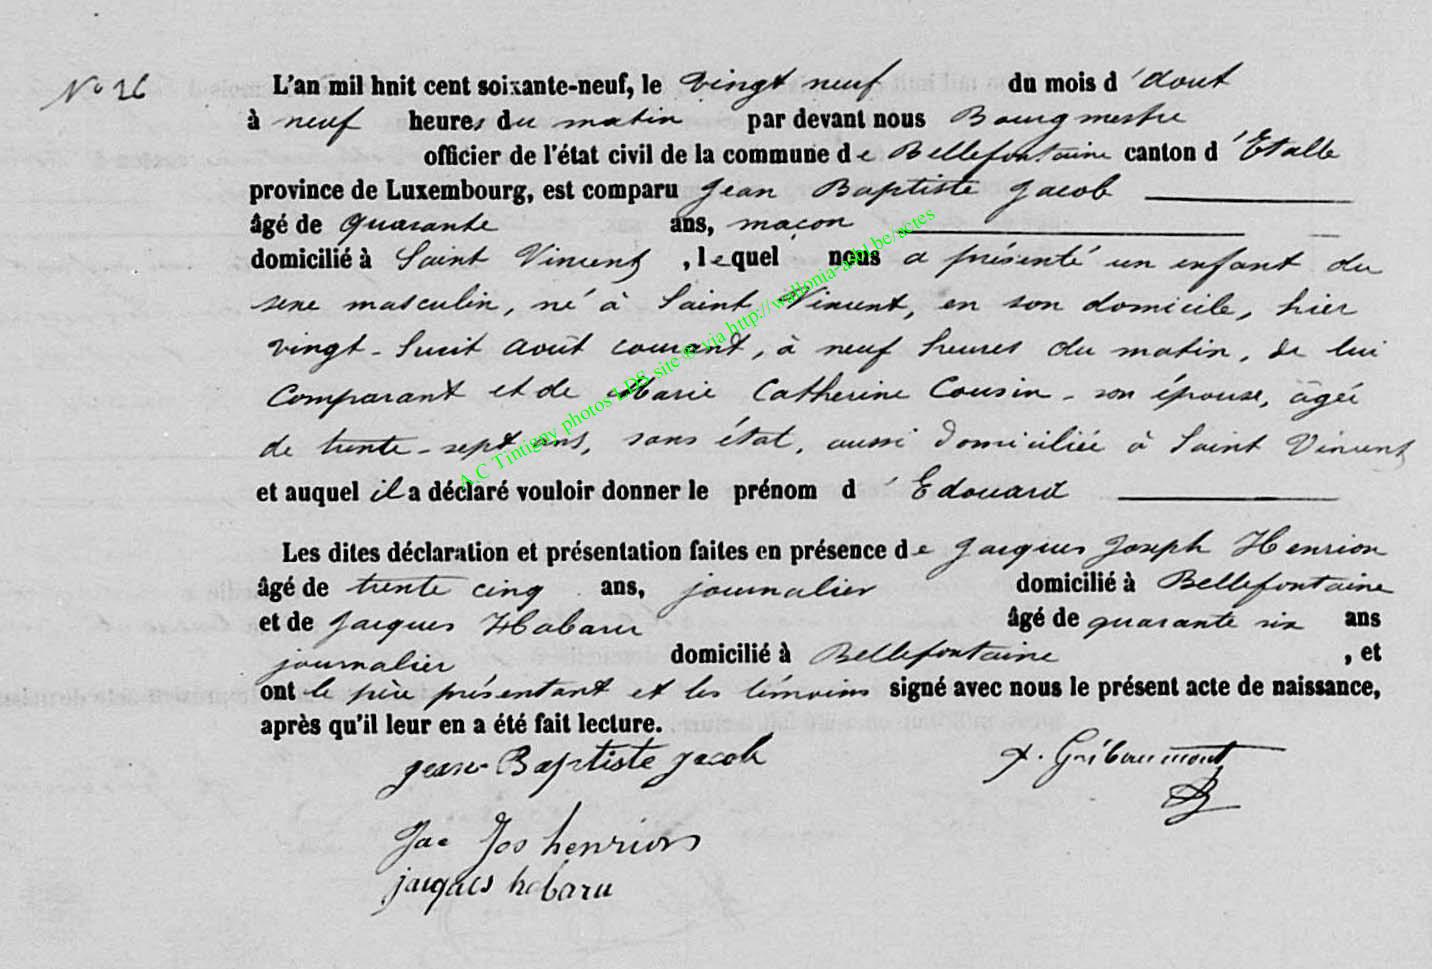 N° 26
L'an mil huit cent soixante-neuf, le vingt neuf du mois d'Août
à neuf heures du matin par devant nous Bourgmestre
officier de l'état civil de la commune de Bellefontaine canton d'Etalle
province de Luxembourg, est comparu Jean Baptiste Jacob
âgé de quarante ans, maçon
domicilié à Saint Vincent, lequel nous a présenté un enfant du
sexe masculin, né à Saint Vincent, en son domicile, hier
vingt-huit Août courant, à neuf heures du matin, de lui
Comparant et de Marie Catherine Cousin - son épouse, âgée
de trente-sept ans, sans état, aussi domiciliée à Saint Vincent
et auquel il a déclaré vouloir donner le prénom d'Edouard
Les dites déclaration et présentation faites en présence de Jacques Joseph Henrion
âgé de trente cinq ans, journalier domicilié à Bellefontaine
et de Jacques Habaru âgé de quarante six ans
journalier domicilié à Bellefontaine, et
ont le père présentant et les témoins signé avec nous le présent acte de naissance,
après qu'il leur en a été fait lecture.
jean Baptiste jacob
Gribaumont
Jac Jos henrion
jacques habaru
A.C Tintigny photos LDS site © via http://wallonia-asbl.be/actes